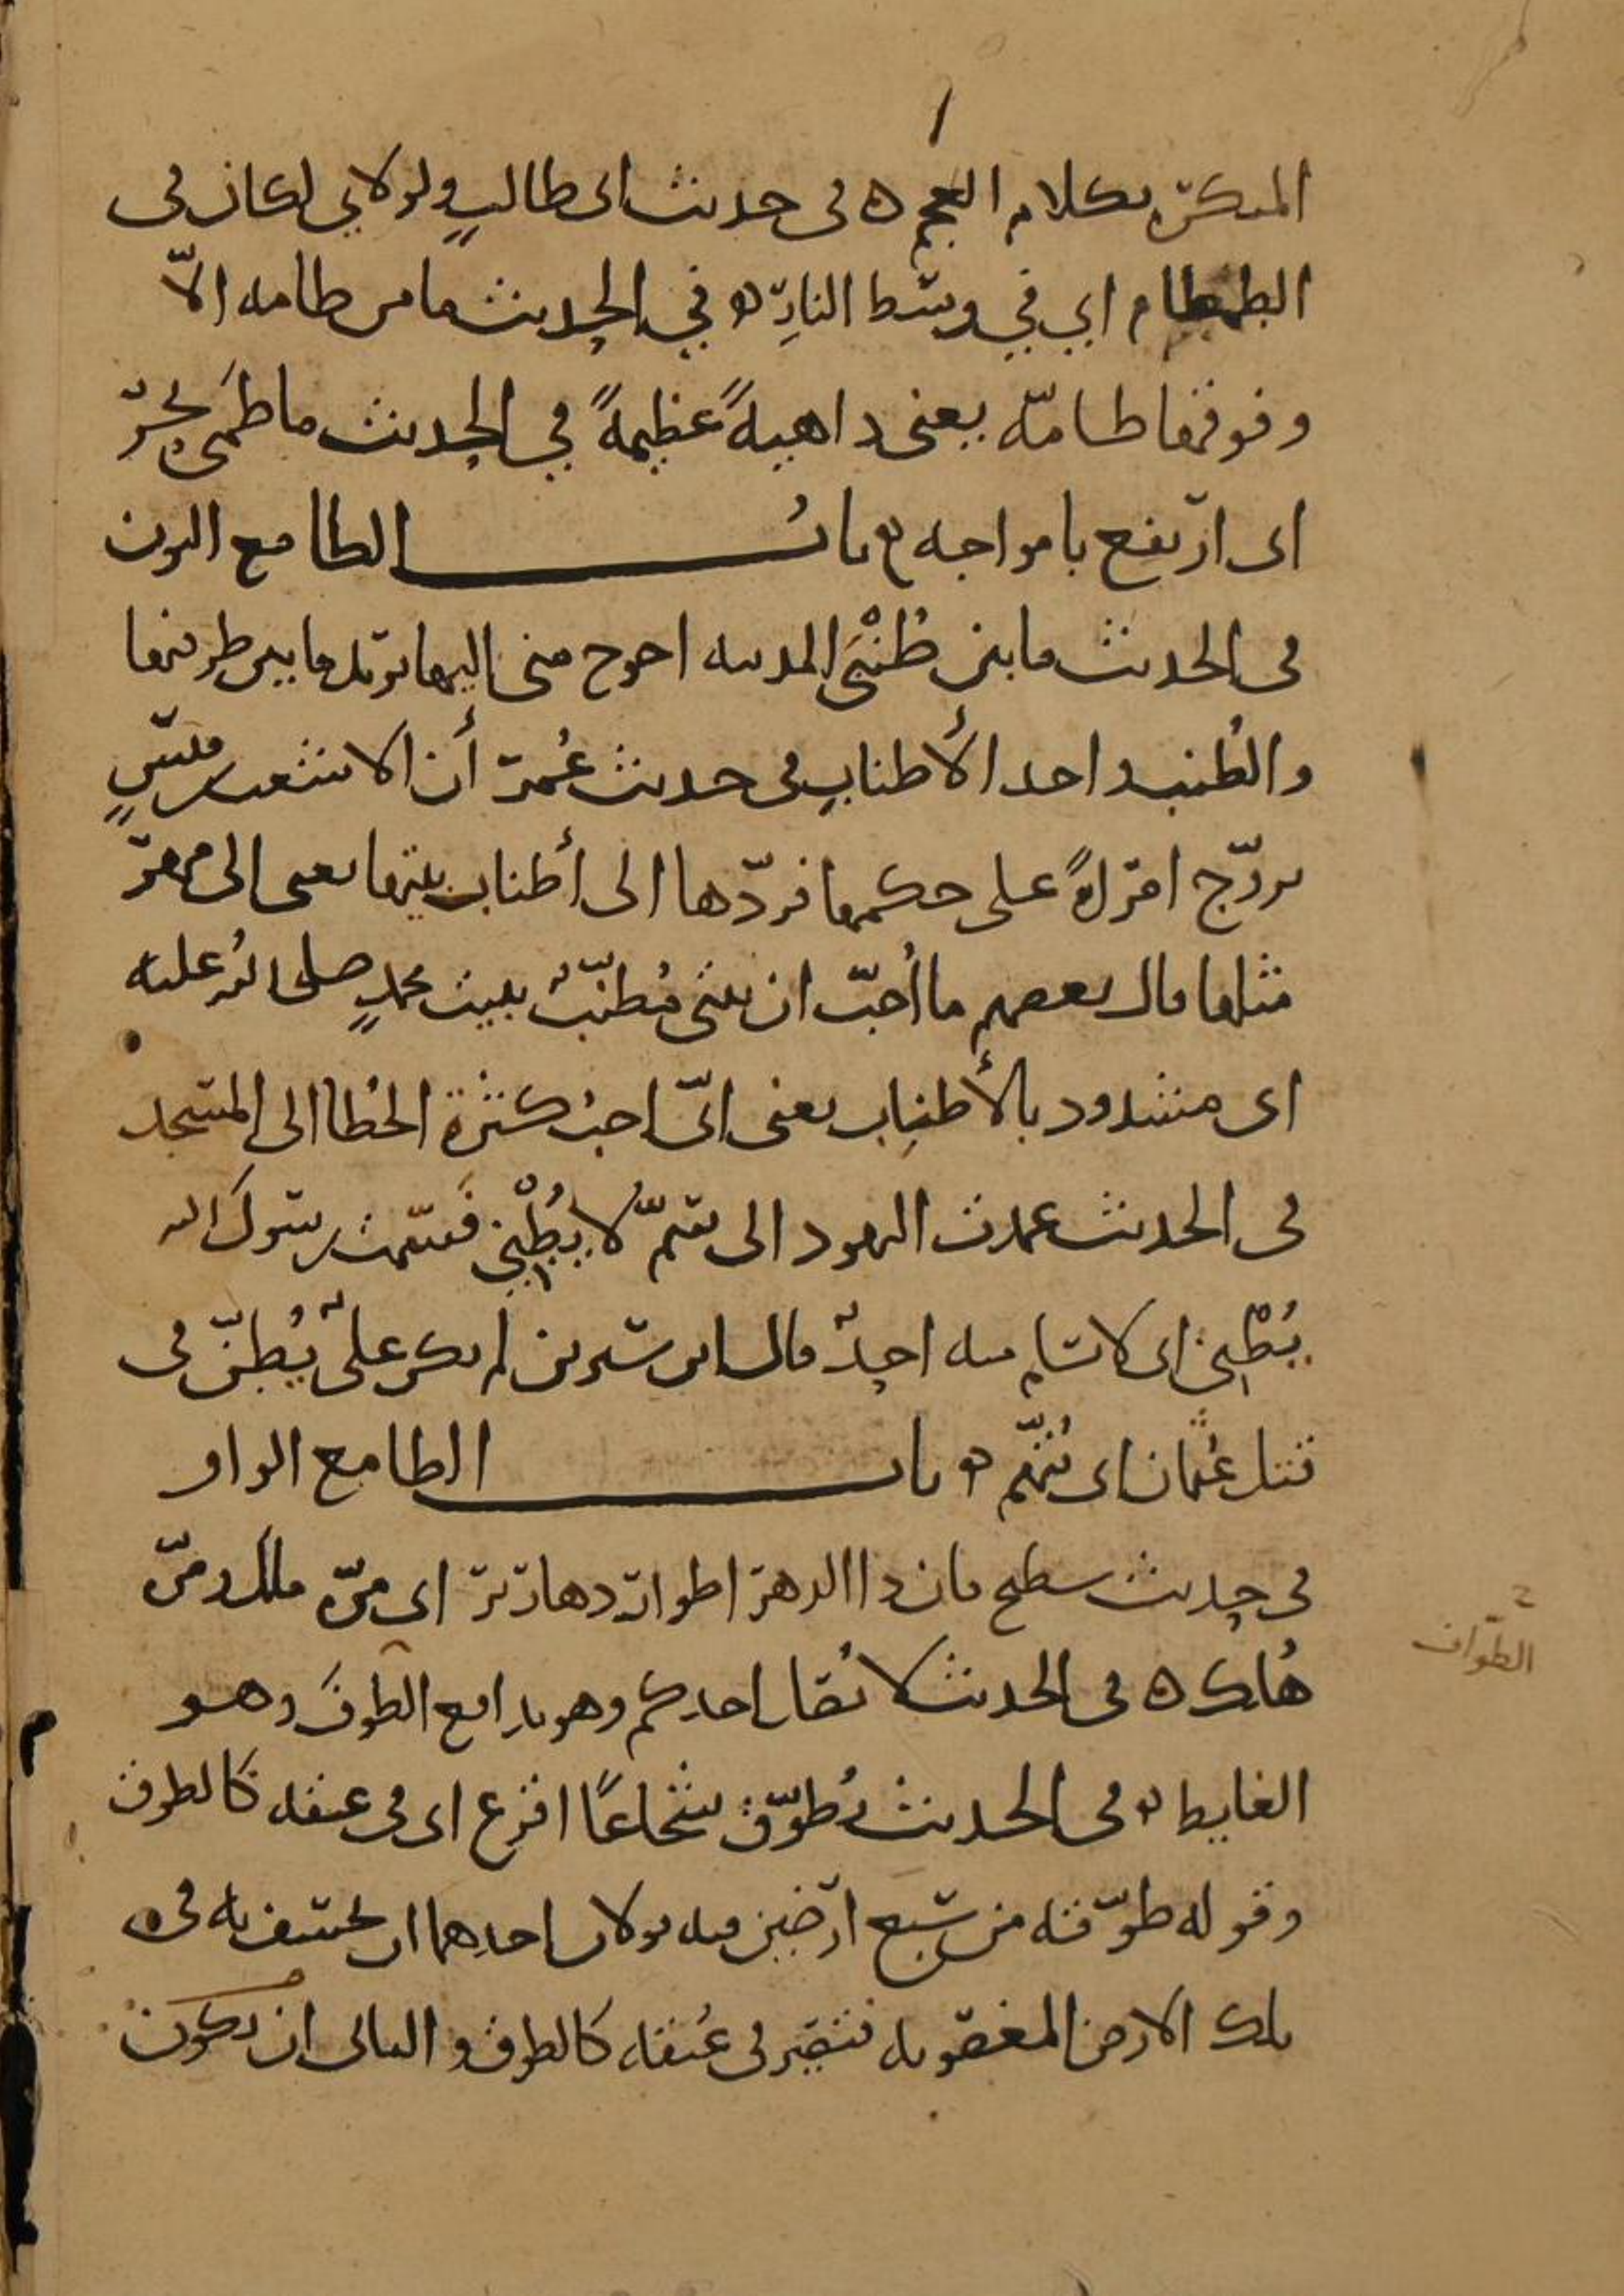 المنكرة بكلام العجم ه في حديث ابي طالب ولولاي لكان في
الطمطام اي في وسط النار ه في الحديث ما من طامه الّا
وفوقها طامّه يعني داهيةً عظيمةً في الحديث ما طمى بحرٌ
اي ارتفع بامواجه ه باب الطا مع النون
في الحديث ما بين طُنْبَي المدينه احوج مني اليها يريد ما بين طرفيها
والطُنب واحد الأطناب في حديث عُمر أن الاشعث بن قيسٍ
تزوّج امراةً على حكمها فردّها الى أطناب بيتها يعني الى مهر
مثلها قال بعضهم ما أُحبّ ان بيتي مُطنّبٌ ببيت محمدٍ صلى الله عليه
اي مشدود بالأطناب يعني انّي احب كثرة الخُطا الى المسجد
في الحديث عمدت اليهود الى سمٍّ لا يُطْني فسمّت رسول الله
يُطْني اي لا يسلم منه احدٌ قال ابن سيرين لم يكن عليٌ يُطنّ في
قتل عُثمان اي يُتّهم ه باب الطا مع الواو
في حديث سطيح فان ذا الدهر اطوار دهارير اي مرّة ملك ومرّة
هُلك ه في الحديث لا يُصل احدكم وهو يدافع الطوف وهو
الطواف
الغايط ه في الحديث يُطوّق شجاعًا اقرع اي في عنقه كالطوق
وقوله طوّقه من سبع ارضين فيه قولان احدهما ان يخسف به في
تلك الارض المغصوبه فتصير في عُنقه كالطوق والثاني ان يكون